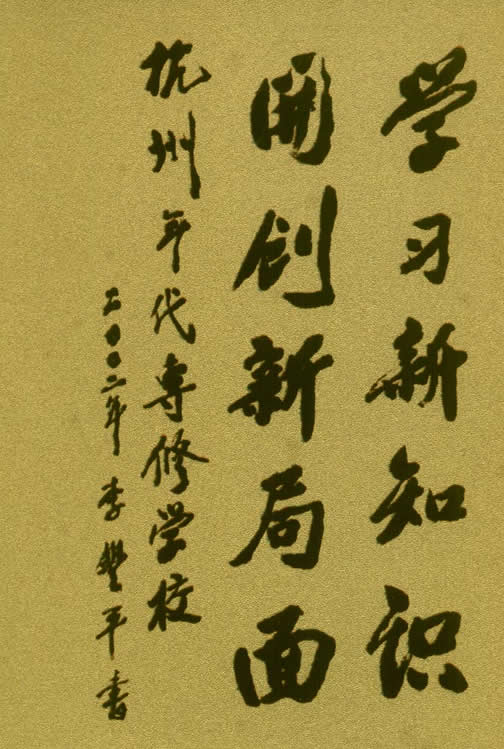 学习新知识
開创新局面
杭州年代專修学校
二〇〇二年 李豐平書